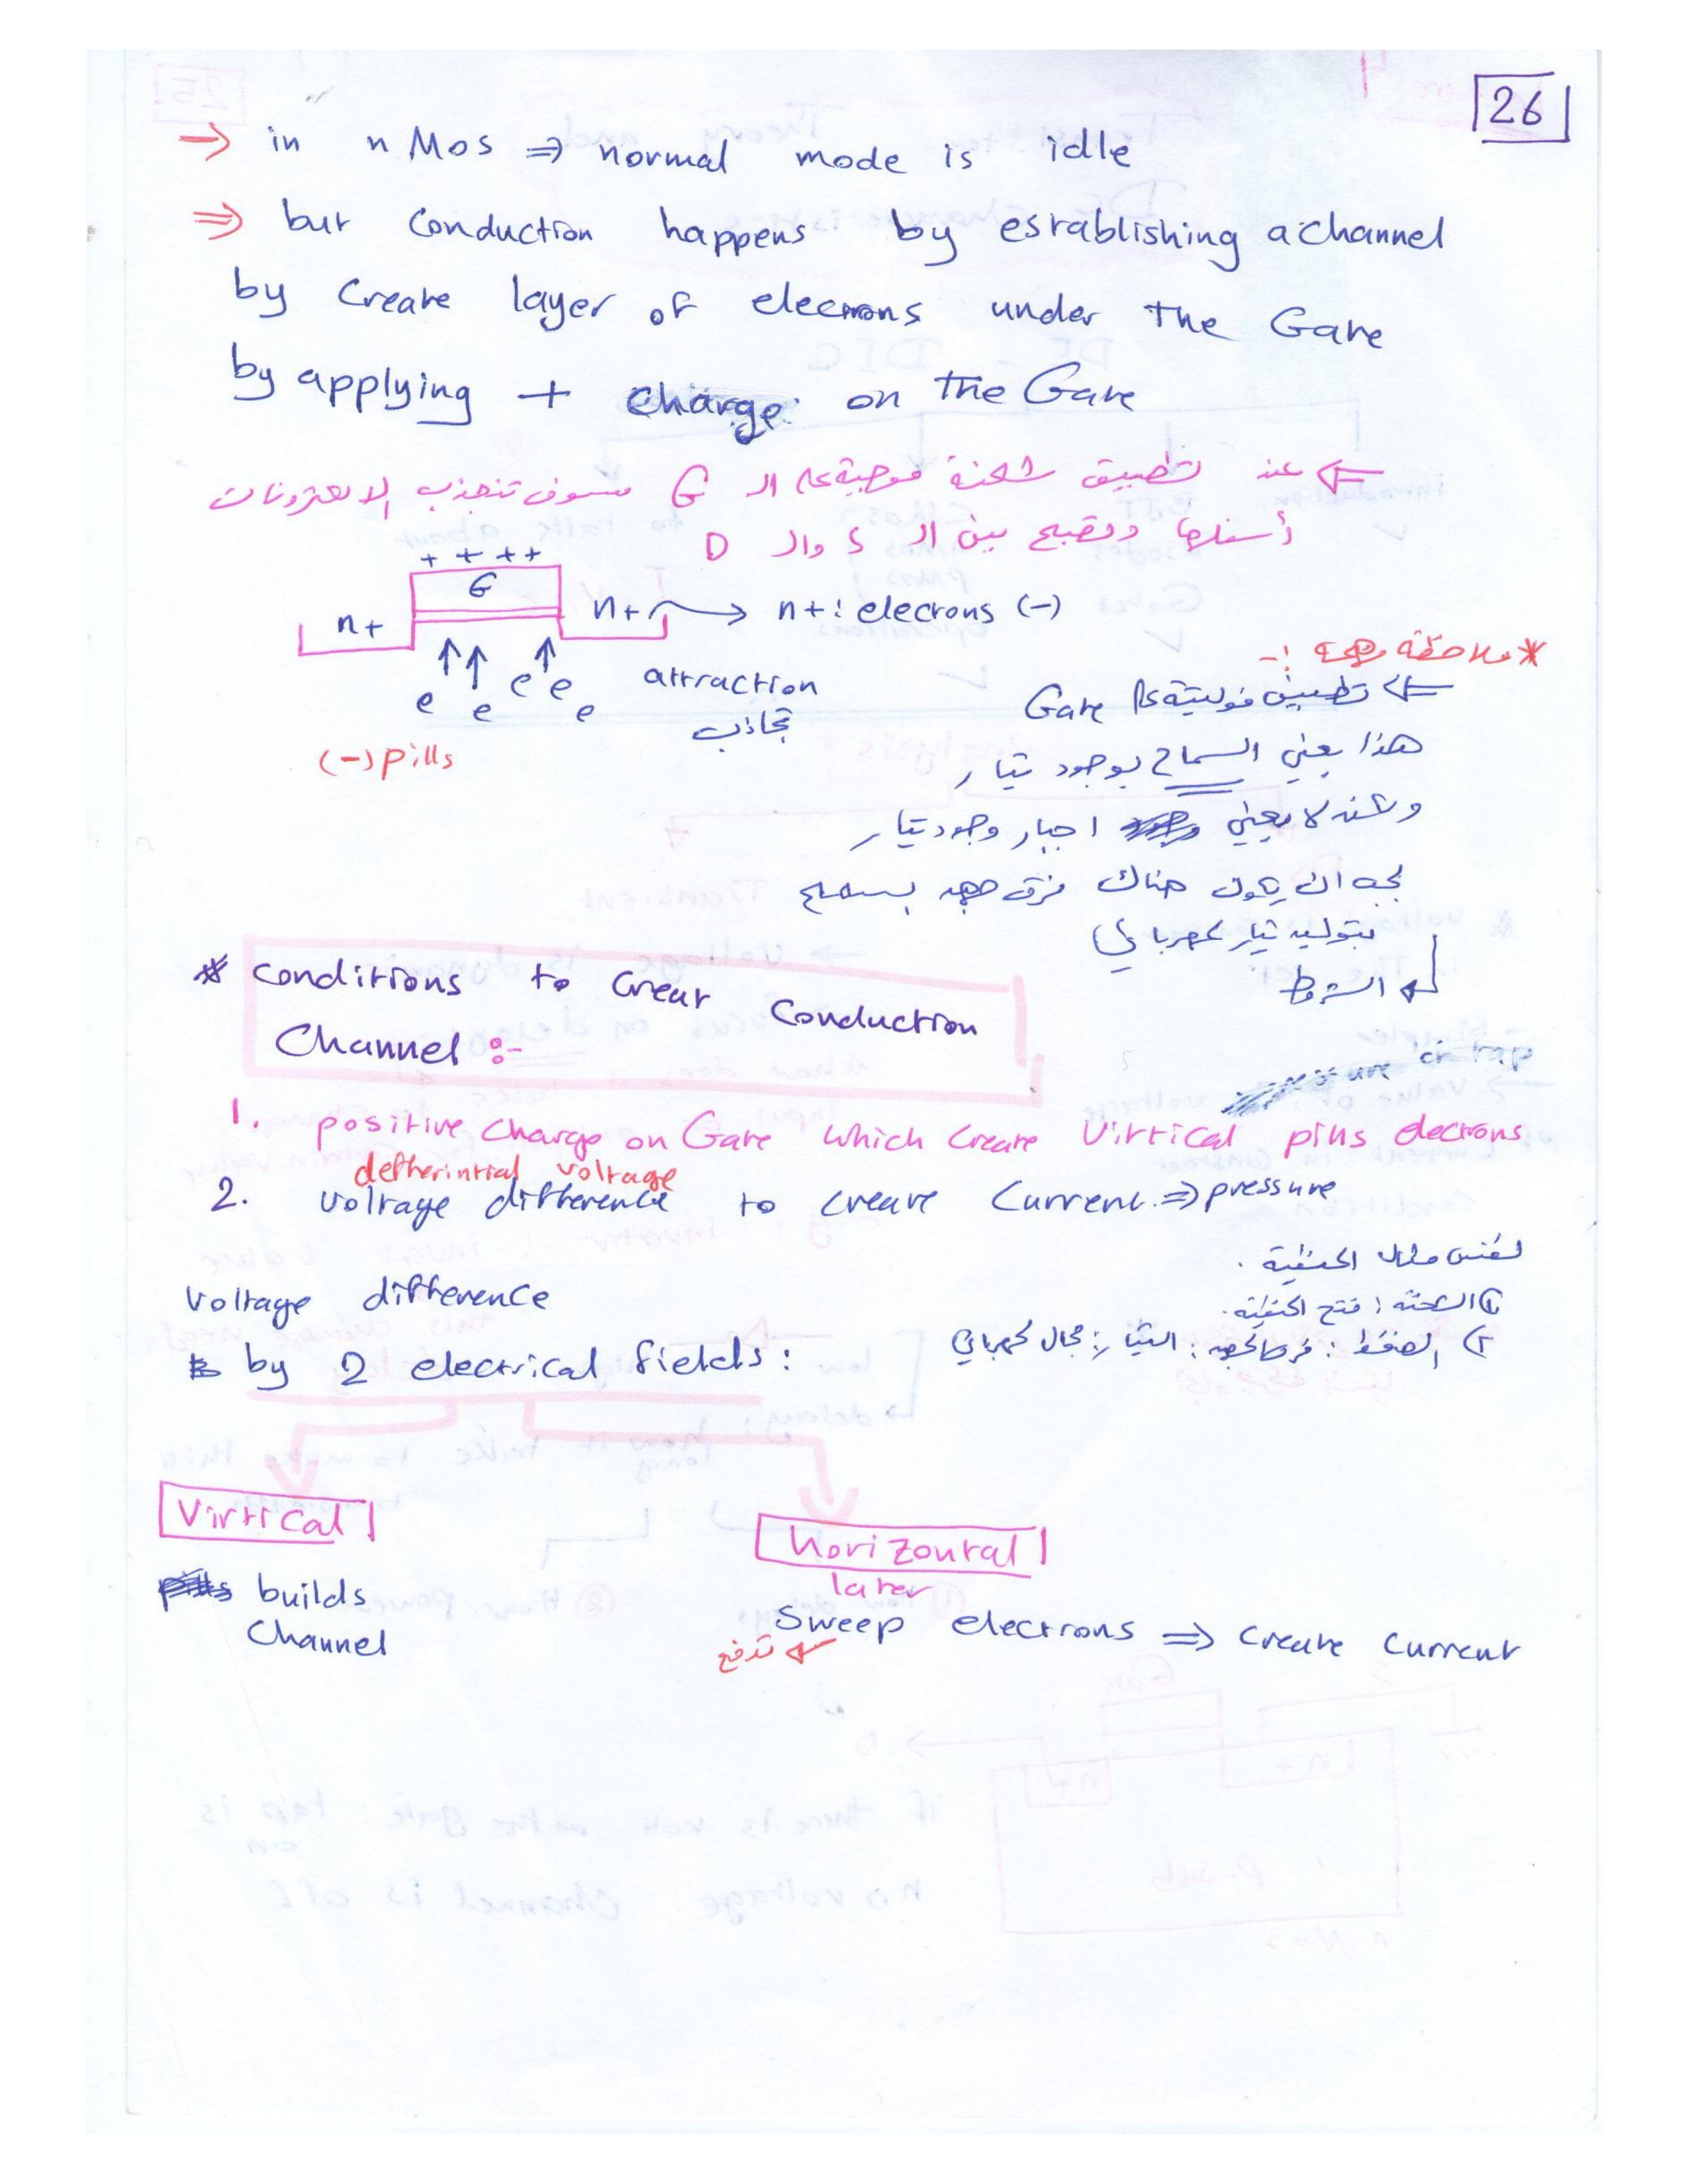 26
→ in nMos ⇒ normal mode is idle
⇒ but conduction happens by establishing a channel
by create layer of elecrrons under the Gate
by applying + charge on the Gate
⇐ عند تطبيق شحنة موجبة على ال G سوف تنجذب الالكترونات
أسفلها وتصبح بين ال S وال D
+ + + +
G
n+ n+ → n+: elecrons (-)
e e e e e
attraction
تجاذب
(-) pills
* ملاحظة مهمة :-
⇐ تطبيق فولتية على Gate
هذا يعني السماح بوجود تيار
ولكنه لا يعني اجبار وجود تيار
يجب ان يكون هناك فرق جهد يسمح
بتوليد تيار كهربائي
الشروط
* conditions to creat conduction
Channel :-
are on tap
1. positive charge on Gate which create Virtical pills elecrons
defherintial voltage
2. voltage difference to create current. ⇒ pressure
لنفس مثال الحنفية .
1) الشحنة : فتح الحنفية.
2) الضغط : فرق الجهد : التيار : مجال كهربائي
voltage difference
by 2 electrical fields :
Virtical
horizontal
later
builds
Channel
sweep electrons ⇒ create current
تدفع